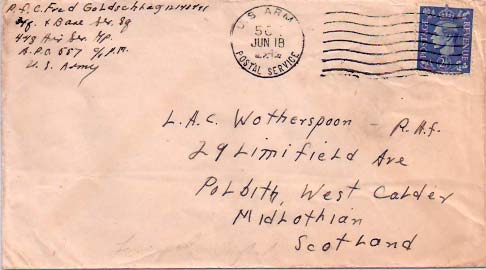 P.f.C. Fred
Hq. & Base Ser. Sq
448 Air Ser. Gp.
A.P.O. 557 c/o P.M.
U.S. Army
U.S. ARMY
JUN 18
POSTAL SERVICE
POSTAGE
REVENUE
L.A.C. Wotherspoon - R.A.f.
29 Limifield Ave
Polbith, West Calder
Midlothian
Scotland